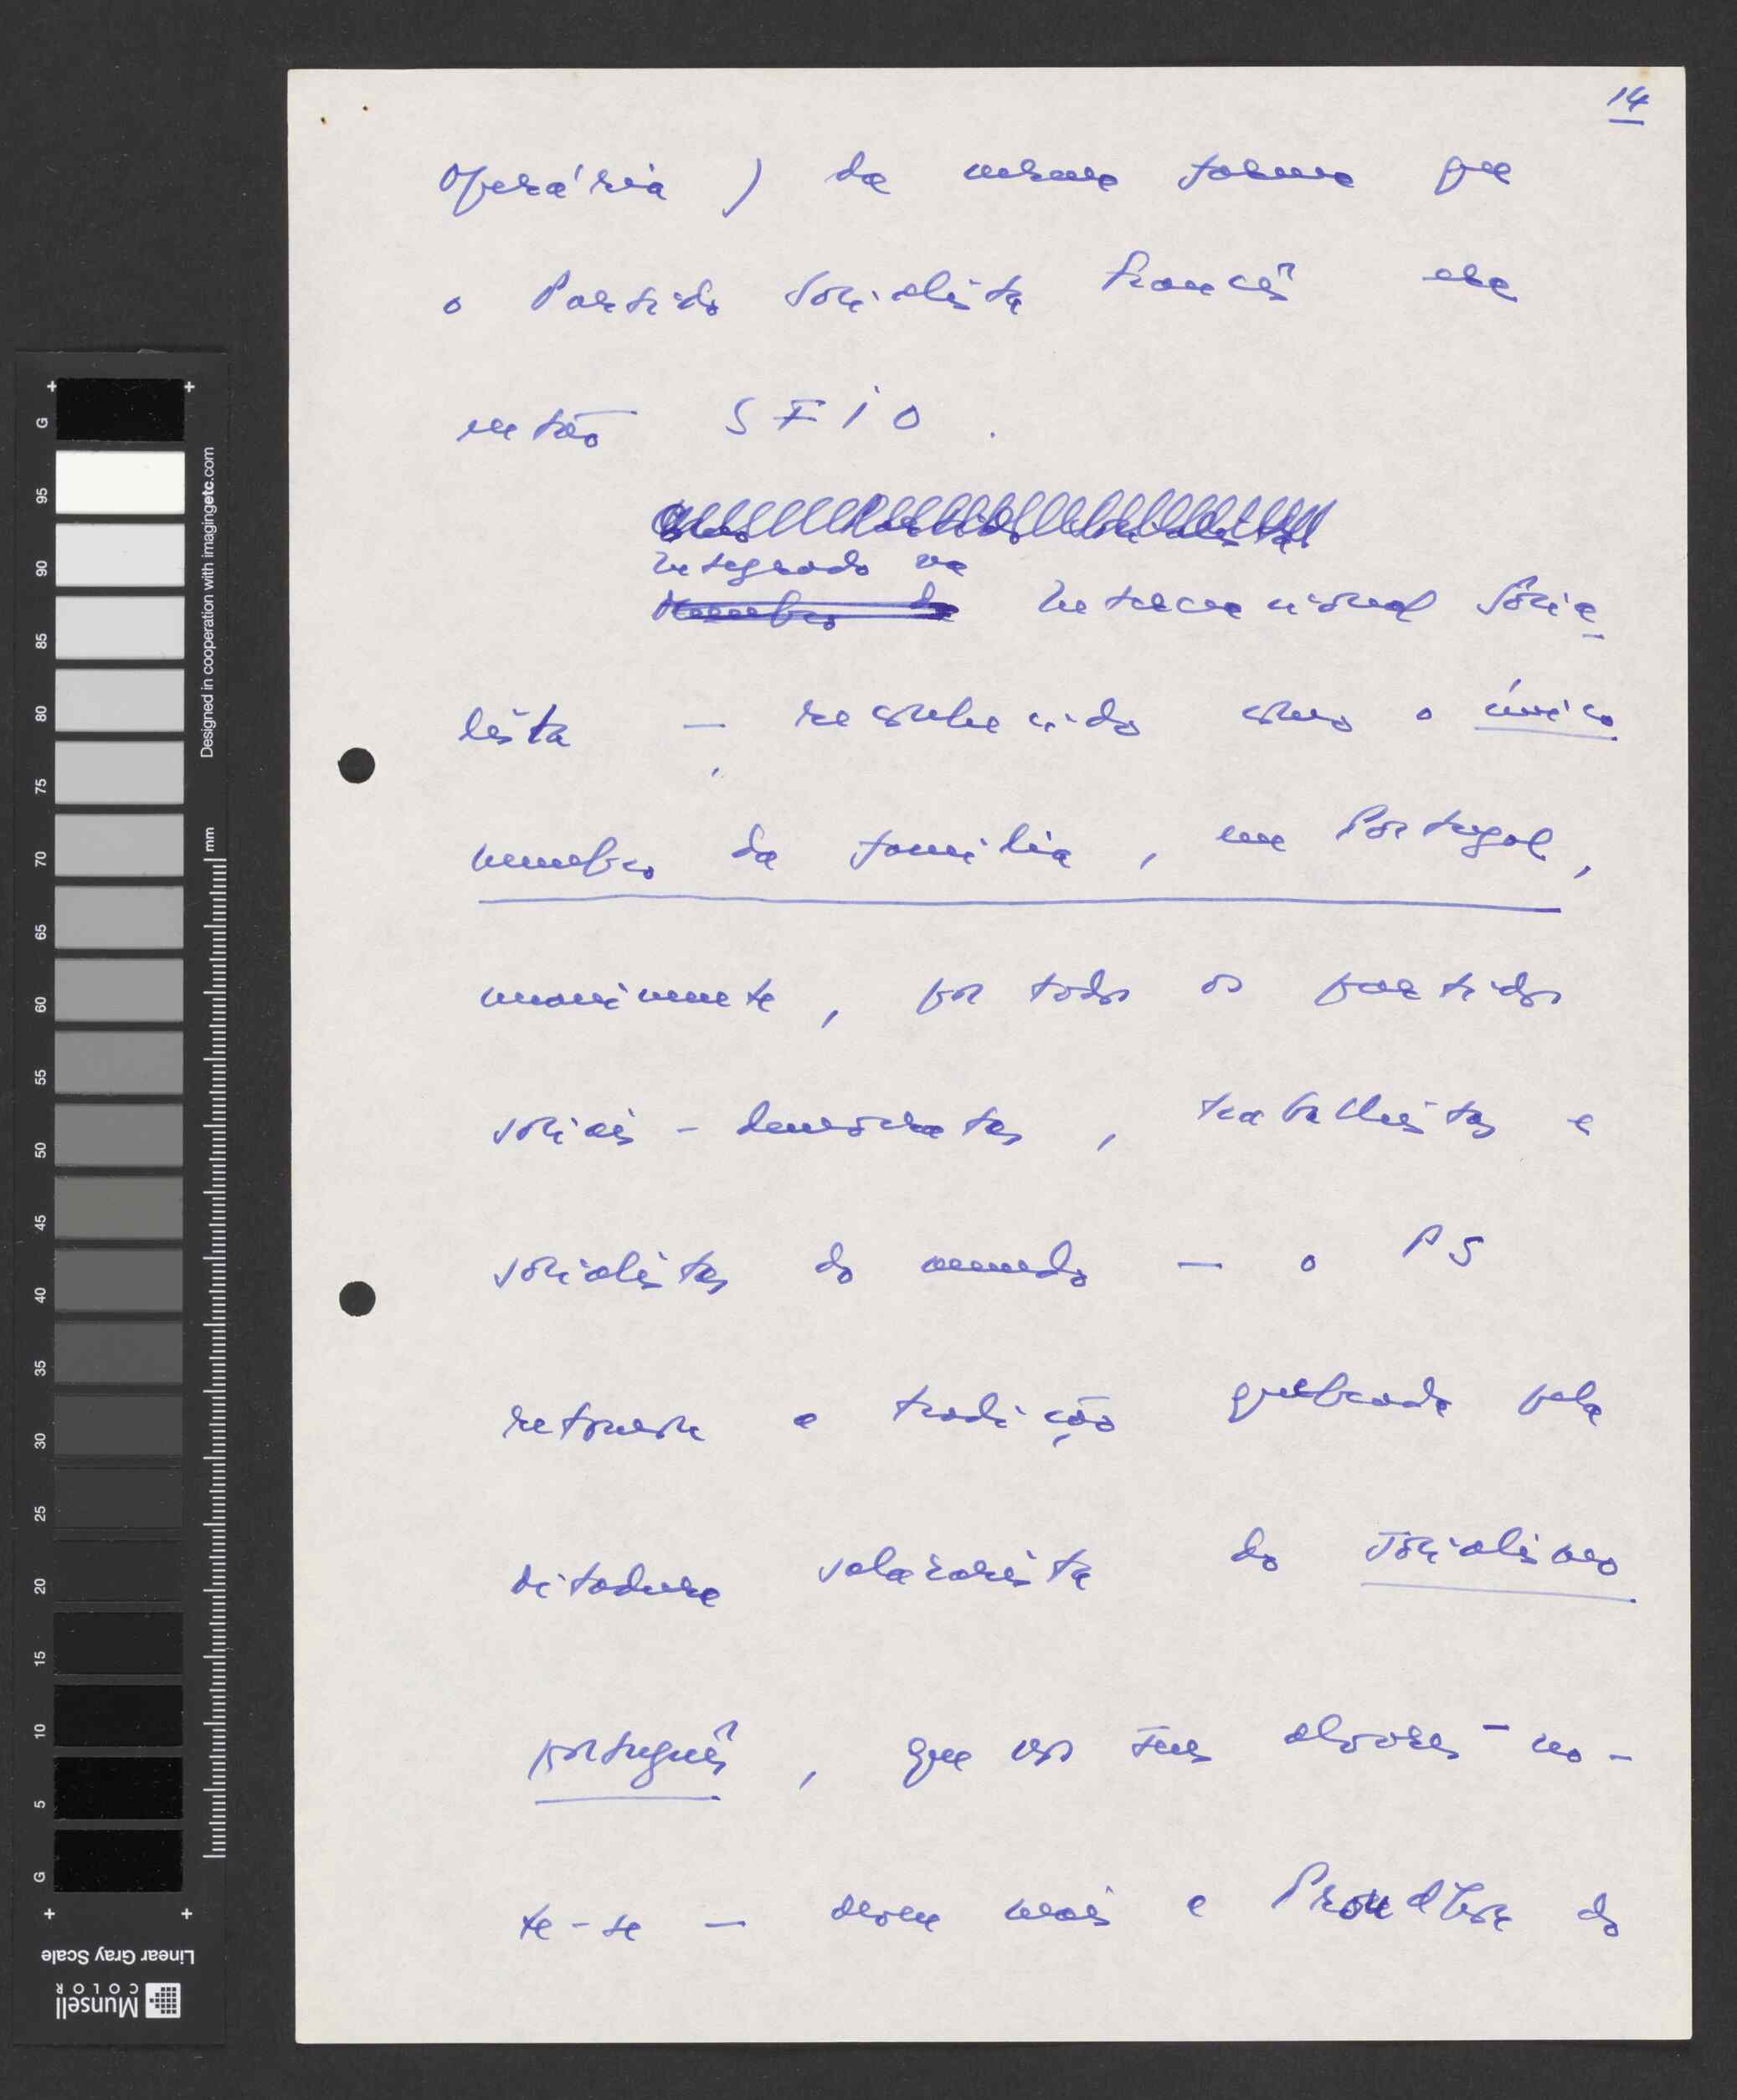 14
operária) da mesma forma que
o Partido Socialista Francês era
então SFIO.
Partido Socialista
Integrado na
Membro da Internacional Socia
lista — reconhecido como o único
membro da família, em Portugal,
unanimente, por todos os partidos
sociais-democratas, trabalhistas e
socialistas do mundo — o PS
retomou a tradição quebrada pela
ditadura salazarista do socialismo
português, que nos seus alvores - no-
te-se — deveu mais a Proudhon do
G
95
90
85
80
75
70
65
60
55
50
45
40
35
30
25
20
15
10
5
G
Designed in cooperation with imagingetc.com
mm
Linear Gray Scale
Munsell
COLOR